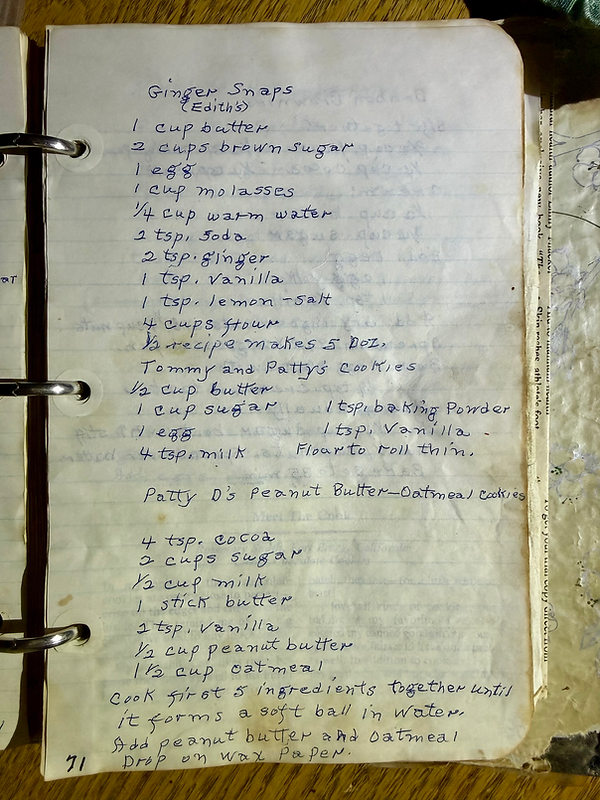 Ginger Snaps
(Edith's)
1 cup butter
2 cups brown sugar
1 egg
1 cup molasses
1/4 cup warm water
2 tsp. soda
2 tsp. ginger
1 tsp. vanilla
1 tsp. lemon - salt
4 cups flour
1/2 recipe makes 5 Doz.
Tommy and Patty's Cookies
1/2 cup butter
1 cup sugar 1 tsp. baking Powder
1 egg 1 tsp. Vanilla
4 tsp. milk Flour to roll thin.
Patty D's Peanut Butter-Oatmeal Cookies
4 tsp. cocoa
2 cups sugar
1/2 cup milk
1 stick butter
2 tsp. Vanilla
1/2 cup peanut butter
1 1/2 cup oatmeal
Cook first 5 ingredients together until
it forms a soft ball in water.
Add peanut butter and oatmeal
Drop on Wax Paper.
71